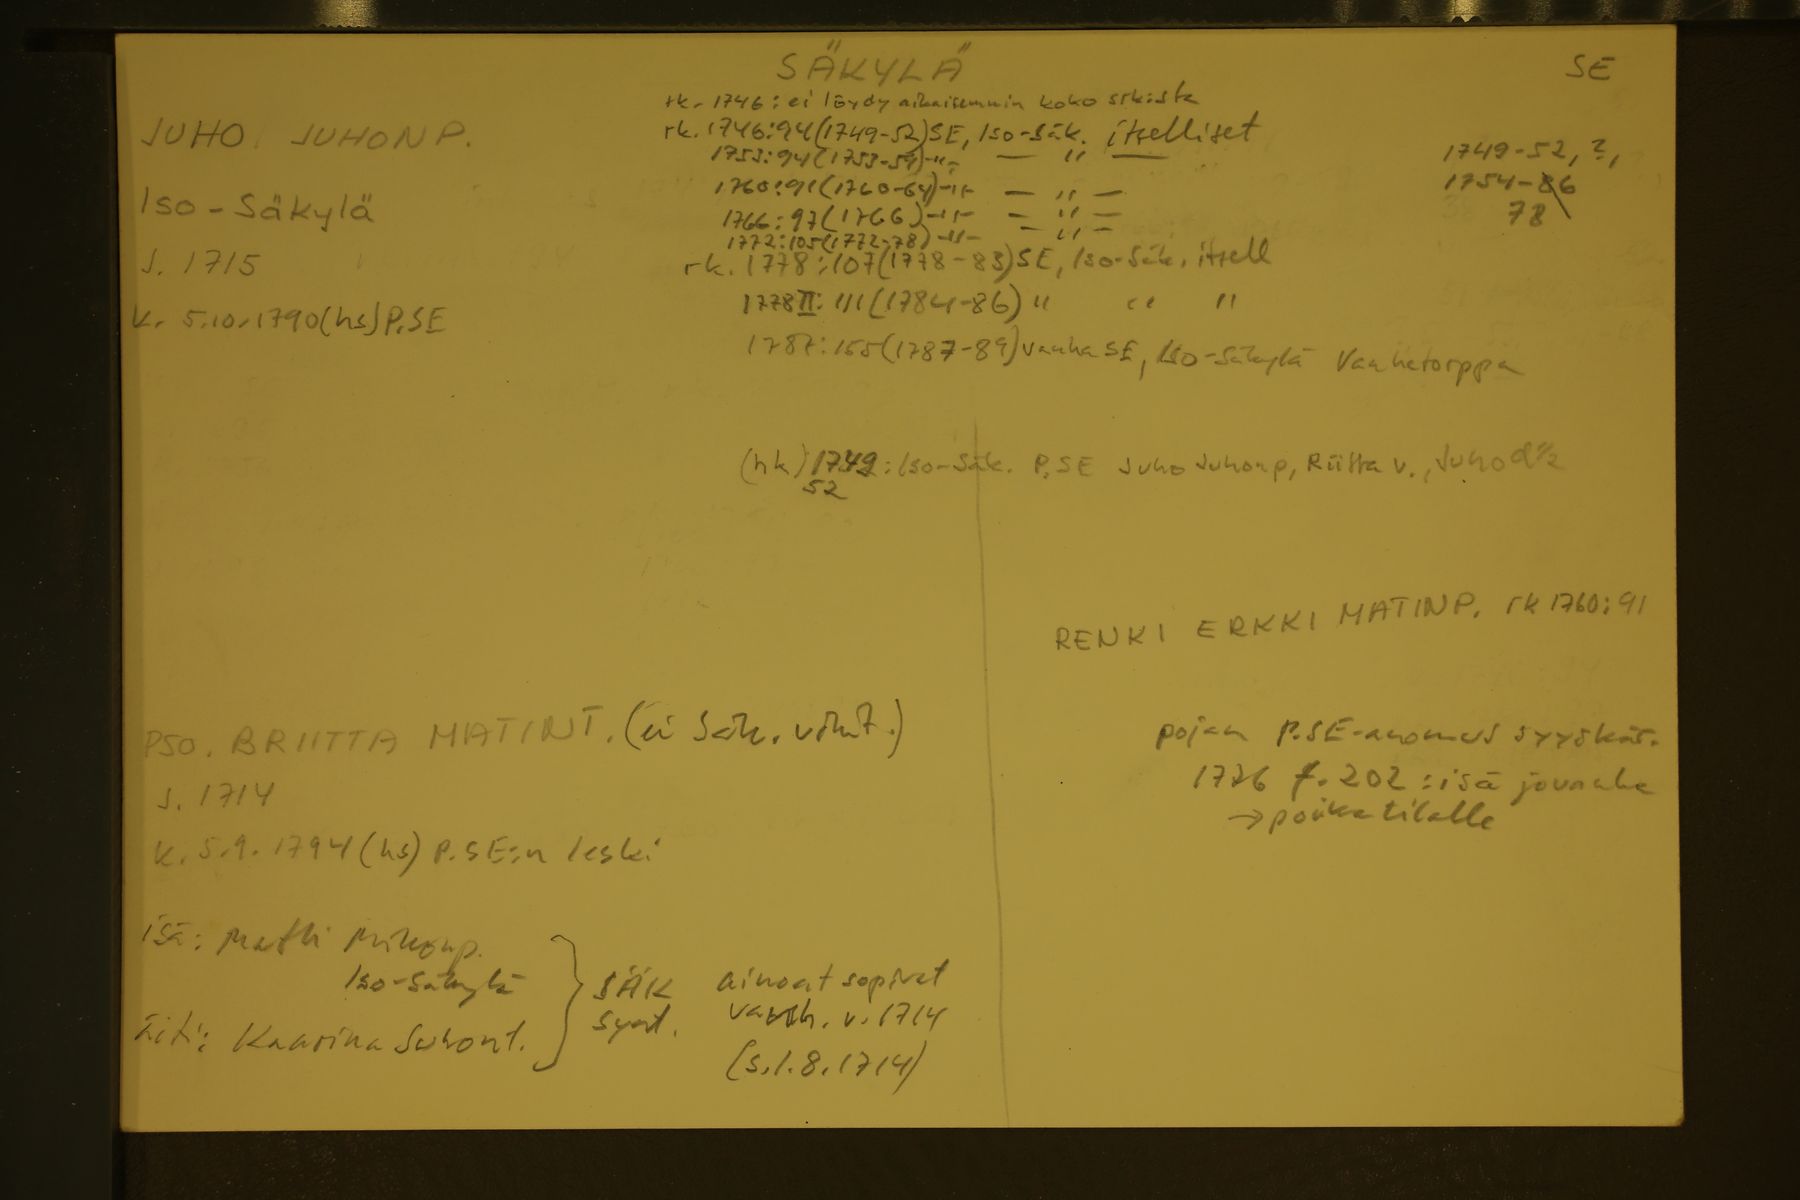 SÄKYLÄ
SE
rk. 1746: ei löydy aikaisemmin koko srk:sta
JUHO JUHONP.
rk. 1746:94(1749-52)SE, Iso-Säk. itselliset
1753:94(1753-59)-"- — " —
1749-52, ?,
1760:91(1760-64)-"- — " —
1754-86
Iso-Säkylä
1766:97(1766)-"- — " —
78
1772:105(1772-78)-"- — " —
s. 1715
rk. 1778:107(1778-83)SE, Iso-Säk. itsell
1778II:111(1784-86) " " "
k. 5.10.1790(hs)P.SE
1787:155(1787-89)vanha SE, Iso-Säkylä Vanhatorppa
(hk) 1749: Iso-Säk. P.SE Juho Juhonp, Riitta v., Juho
52
RENKI ERKKI MATINP. rk 1760:91
PSO. BRIITTA MATINT. (ei Säk. vihit.)
pojan P.SE-anomus syyskär.
s. 1714
1776 f. 202: isä jouanhe
→ poika tilalle
k. 5.9.1794(hs) P.SE:n leski
isä: Matti Mikonp.
Iso-Säkylä
SÄK ainoat sopivat
äiti: Kaarina Juhont.
synt. vanh. v. 1714
(s. 1.8.1714)